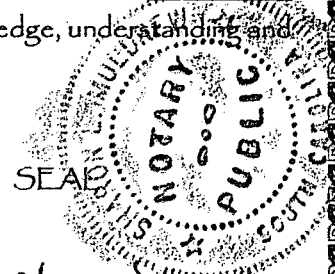 edge, understanding and
SEAL
NOTARY
PUBLIC
SOUTH CAROLINA